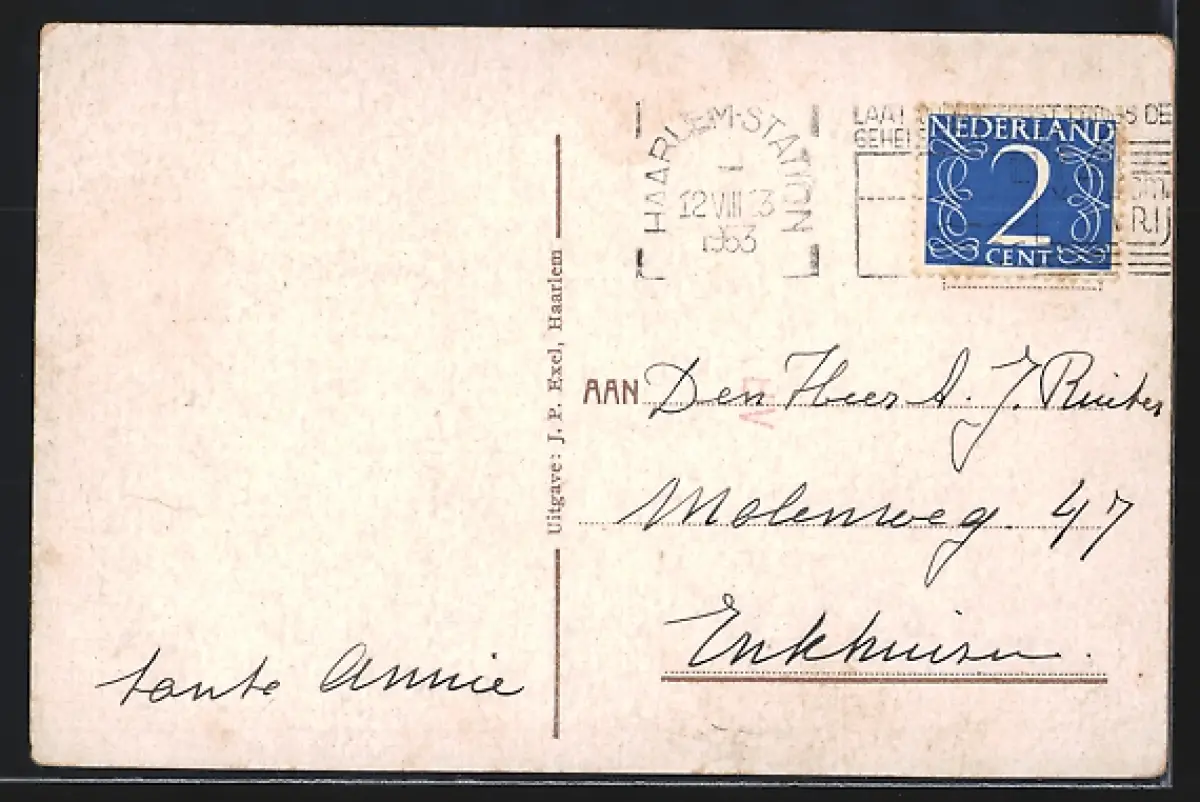 HAARLEM-STATION
12 VIII 13
1953
LAAT DE
GEHEE
RIJ
NEDERLAND
2
CENT
Uitgave: J. P. Exel, Haarlem
AAN Den Heer A. J. Ruiter
Molenweg. 47
Enkhuizen.
tante Annie